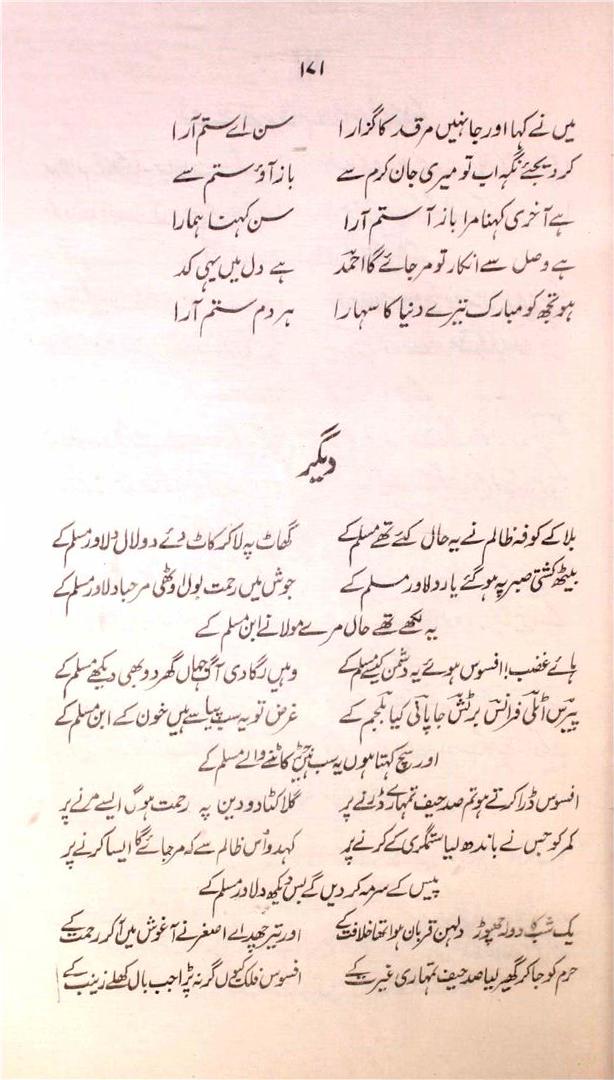 ۱۷۱
میں نے کہا اور جا نہیں مرقد کا گزارا سن اے ستم آرا
کر دیجئے نگہ اب تو میری جان کرم سے باز آؤ ستم سے
ہے آخری کہنا مرا باز آ ستم آرا سن کہنا ہمارا
ہے وصل سے انکار تو مر جائے گا احمدؔ ہے دل میں یہی کد
ہو تجھ کو مبارک تیرے دنیا کا سہارا ہر دم ستم آرا
دیگر
بلا کے کوفہ ظالم نے یہ حال کئے تھے مسلم کے گھاٹ پہ لا کر کاٹ دئے دو لال دلاور مسلم کے
بیٹھ کشتی صبر پہ ہو گئے یار دلاور مسلم کے جوش میں رحمت بول اوٹھی مرحبا دلاور مسلم کے
یہ لکھے تھے حال مرے مولا نے ابن مسلم کے
ہائے غضب! افسوس ہوئے یہ دشمن کیسے مسلم کے وہیں لگا دی آگ جہاں گھر دو بھی دیکھے مسلم کے
پیرس اٹلی فرانس برٹش جاپانی کیا بلجم کے غرض تو یہ سب پیاسے ہیں خون کے ابن مسلم کے
اور سچ کہتا ہوں یہ سب ہیں جڑ کاٹنے والے مسلم کے
افسوس ڈرا کرتے ہو تم صد حیف تمہارے ڈرنے پر گلا کٹا دو دین پہ رحمت ہوگی ایسے مرنے پر
کمر کو جس نے باندھ لیا ستمگری کے کرنے پر کہدو اس ظالم سے کہ مر جائے گا ایسا کرنے پر
پیس کے سرمہ کر دیں گے بس دیکھ دلاور مسلم کے
یک شب کا دولہ چھوڑ دلہن قربان ہوا تھا خلافت کے اور تیر چھدائے اصغر نے آغوش میں آ کر رحمت کے
حرم کو جا کر گھیر لیا صد حیف تمہاری غیرت کے افسوس فلک کیوں گر نہ پڑا جب بال کھلے زینب کے